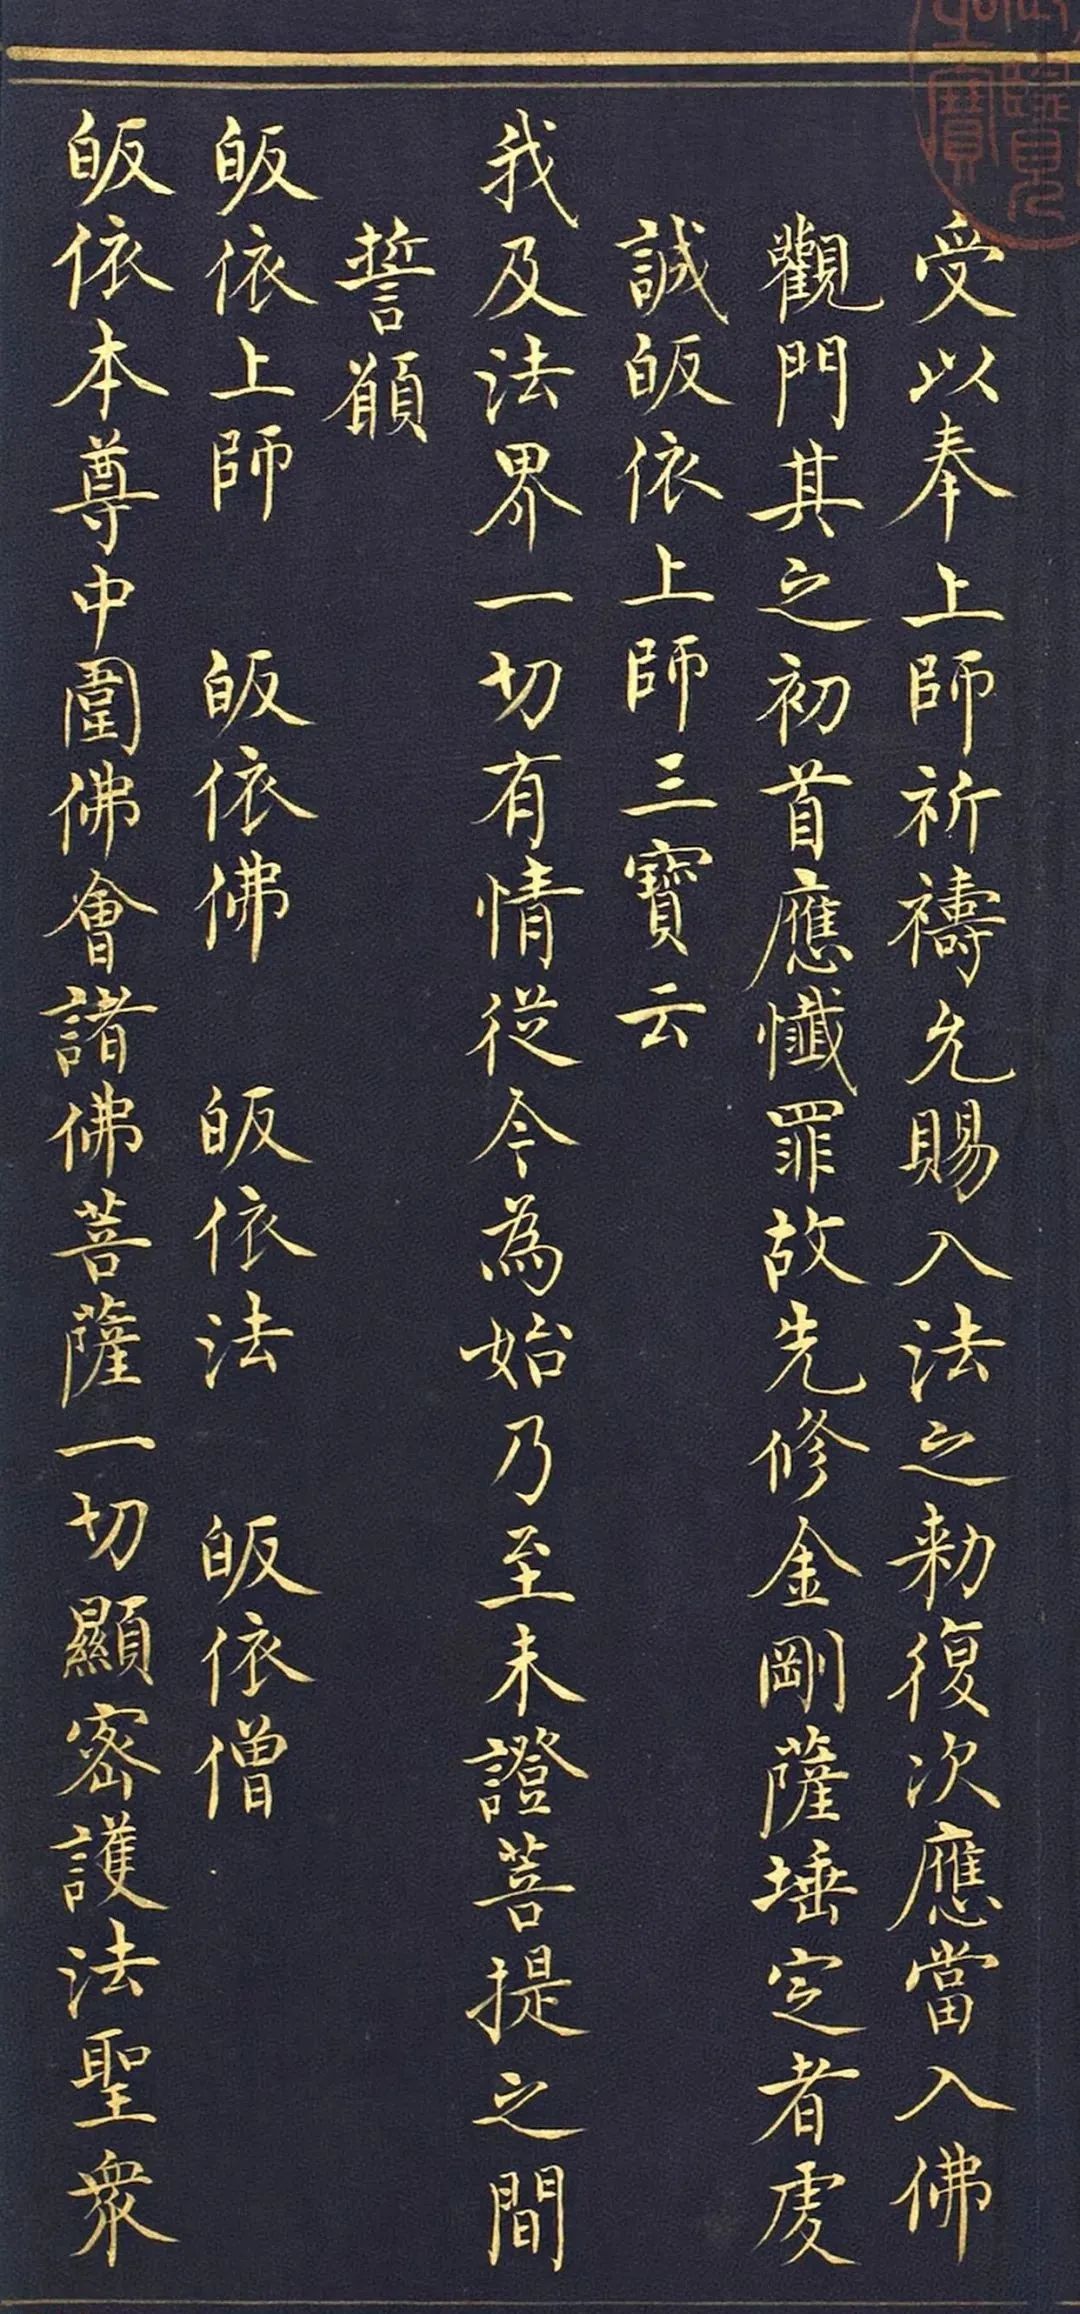 受以奉上師祈禱允賜入法之勑復次應當入佛
觀門其之初首應懺罪故先修金剛薩埵定者虔
誠皈依上師三寶云
我及法界一切有情從今為始乃至未證菩提之間
誓願
皈依上師 皈依佛 皈依法 皈依僧
皈依本尊中圍佛會諸佛菩薩一切顯密護法聖衆